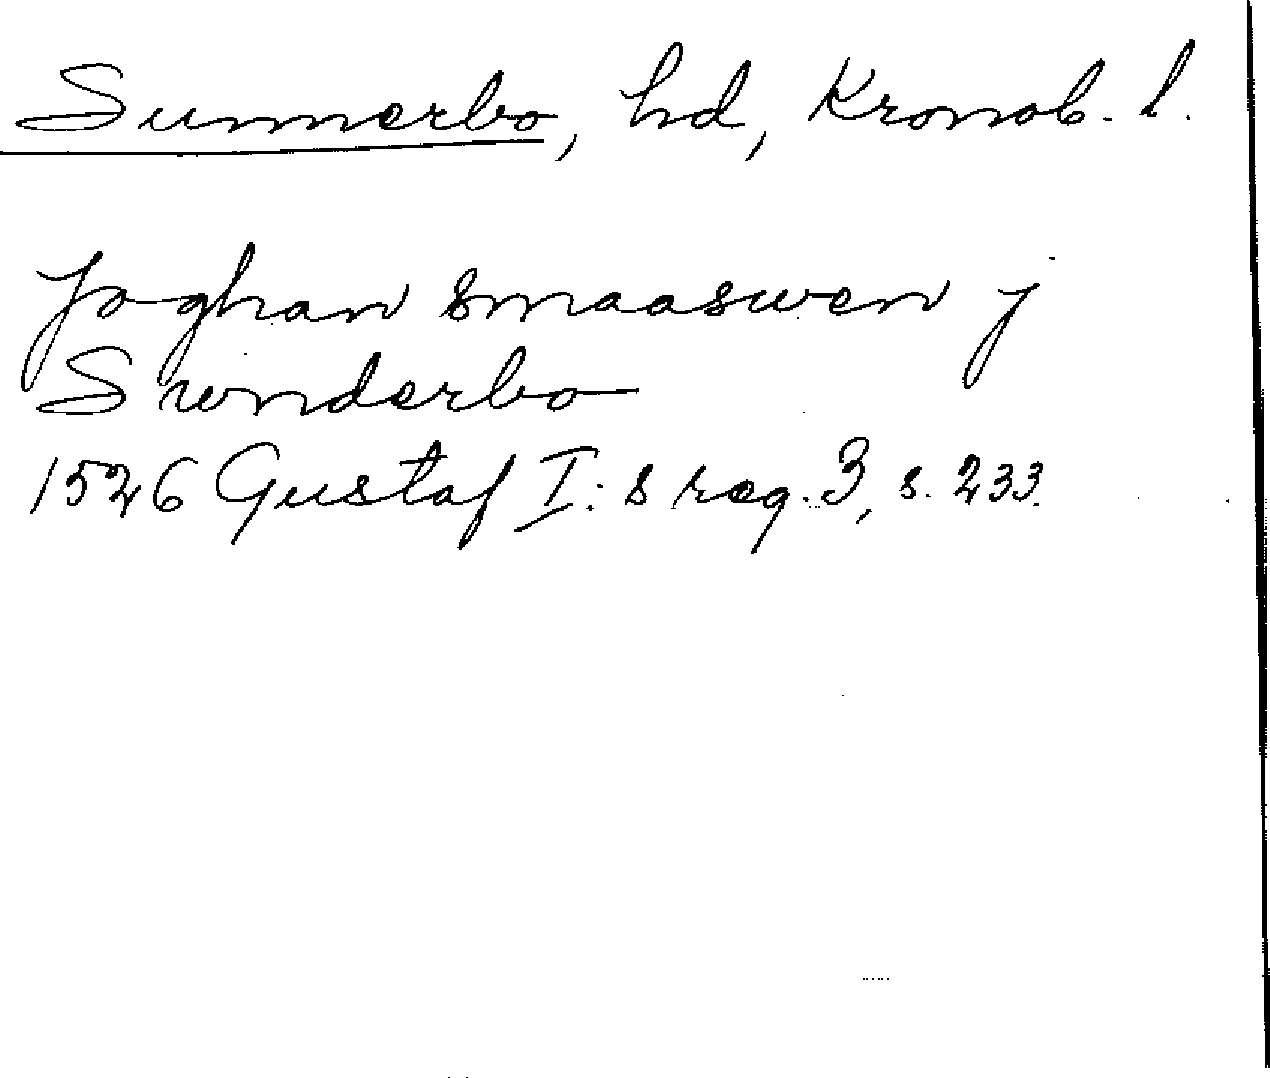 Sunnerbo, hd, Kronob. l.
Joghan smaaswen j
Swnderbo
1526 Gustaf I: s reg. 3, s. 233.